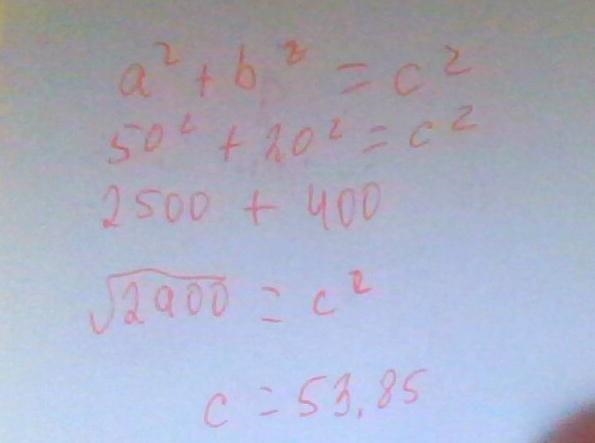 a² + b² = c²
50² + 20² = c²
2500 + 400
√2900 = c²
c = 53.85